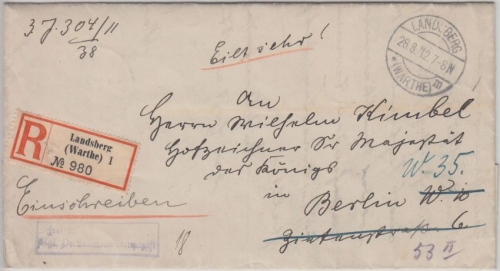 3 J. 304/11
38
Eilt sehr!
LANDSBERG
28.8.12.7-8N
*(WARTHE)m
R
Landsberg
(Warthe) 1
№ 980
An
Herrn Wilhelm Kimbel
Hofzeichner Sr Majestät
des Königs
W. 35.
in Berlin W. 10
Einschreiben
Zietenstraße 6
18
53 II